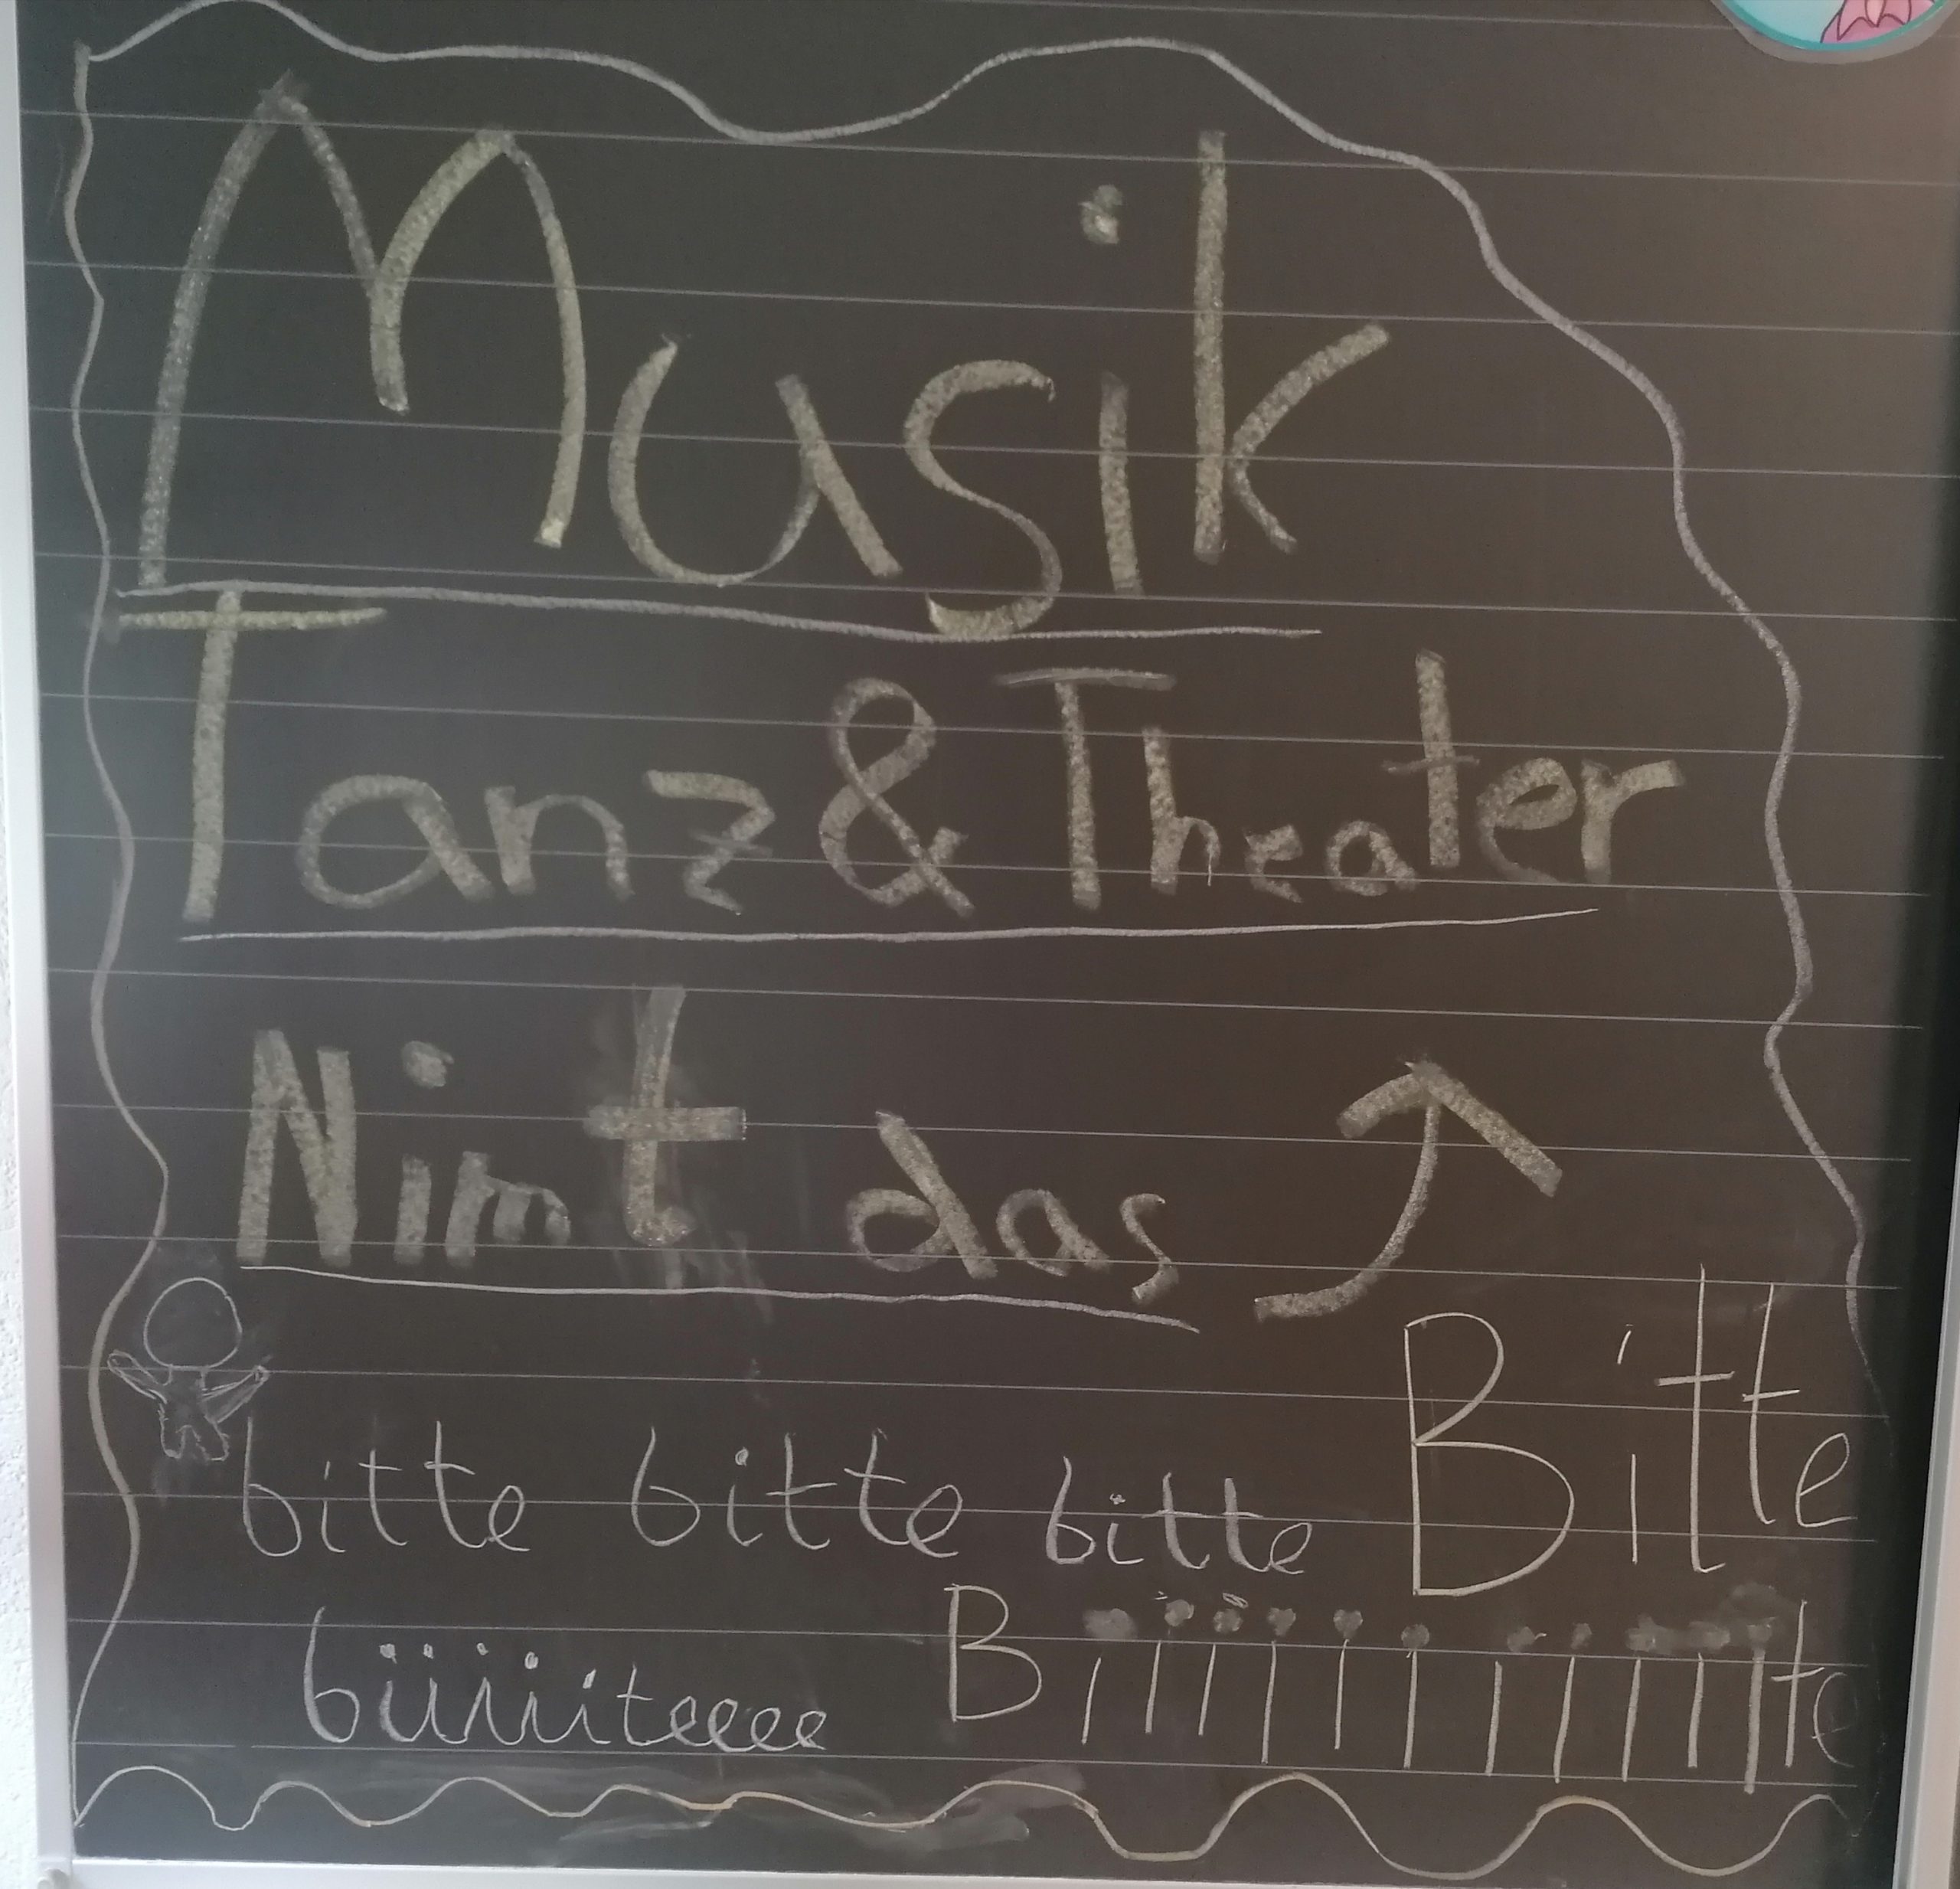 Musik
Tanz & Theater
Nimt das ↑
bitte bitte bitte Bitte
biiiiiteeee Biiiiiiiiiiite